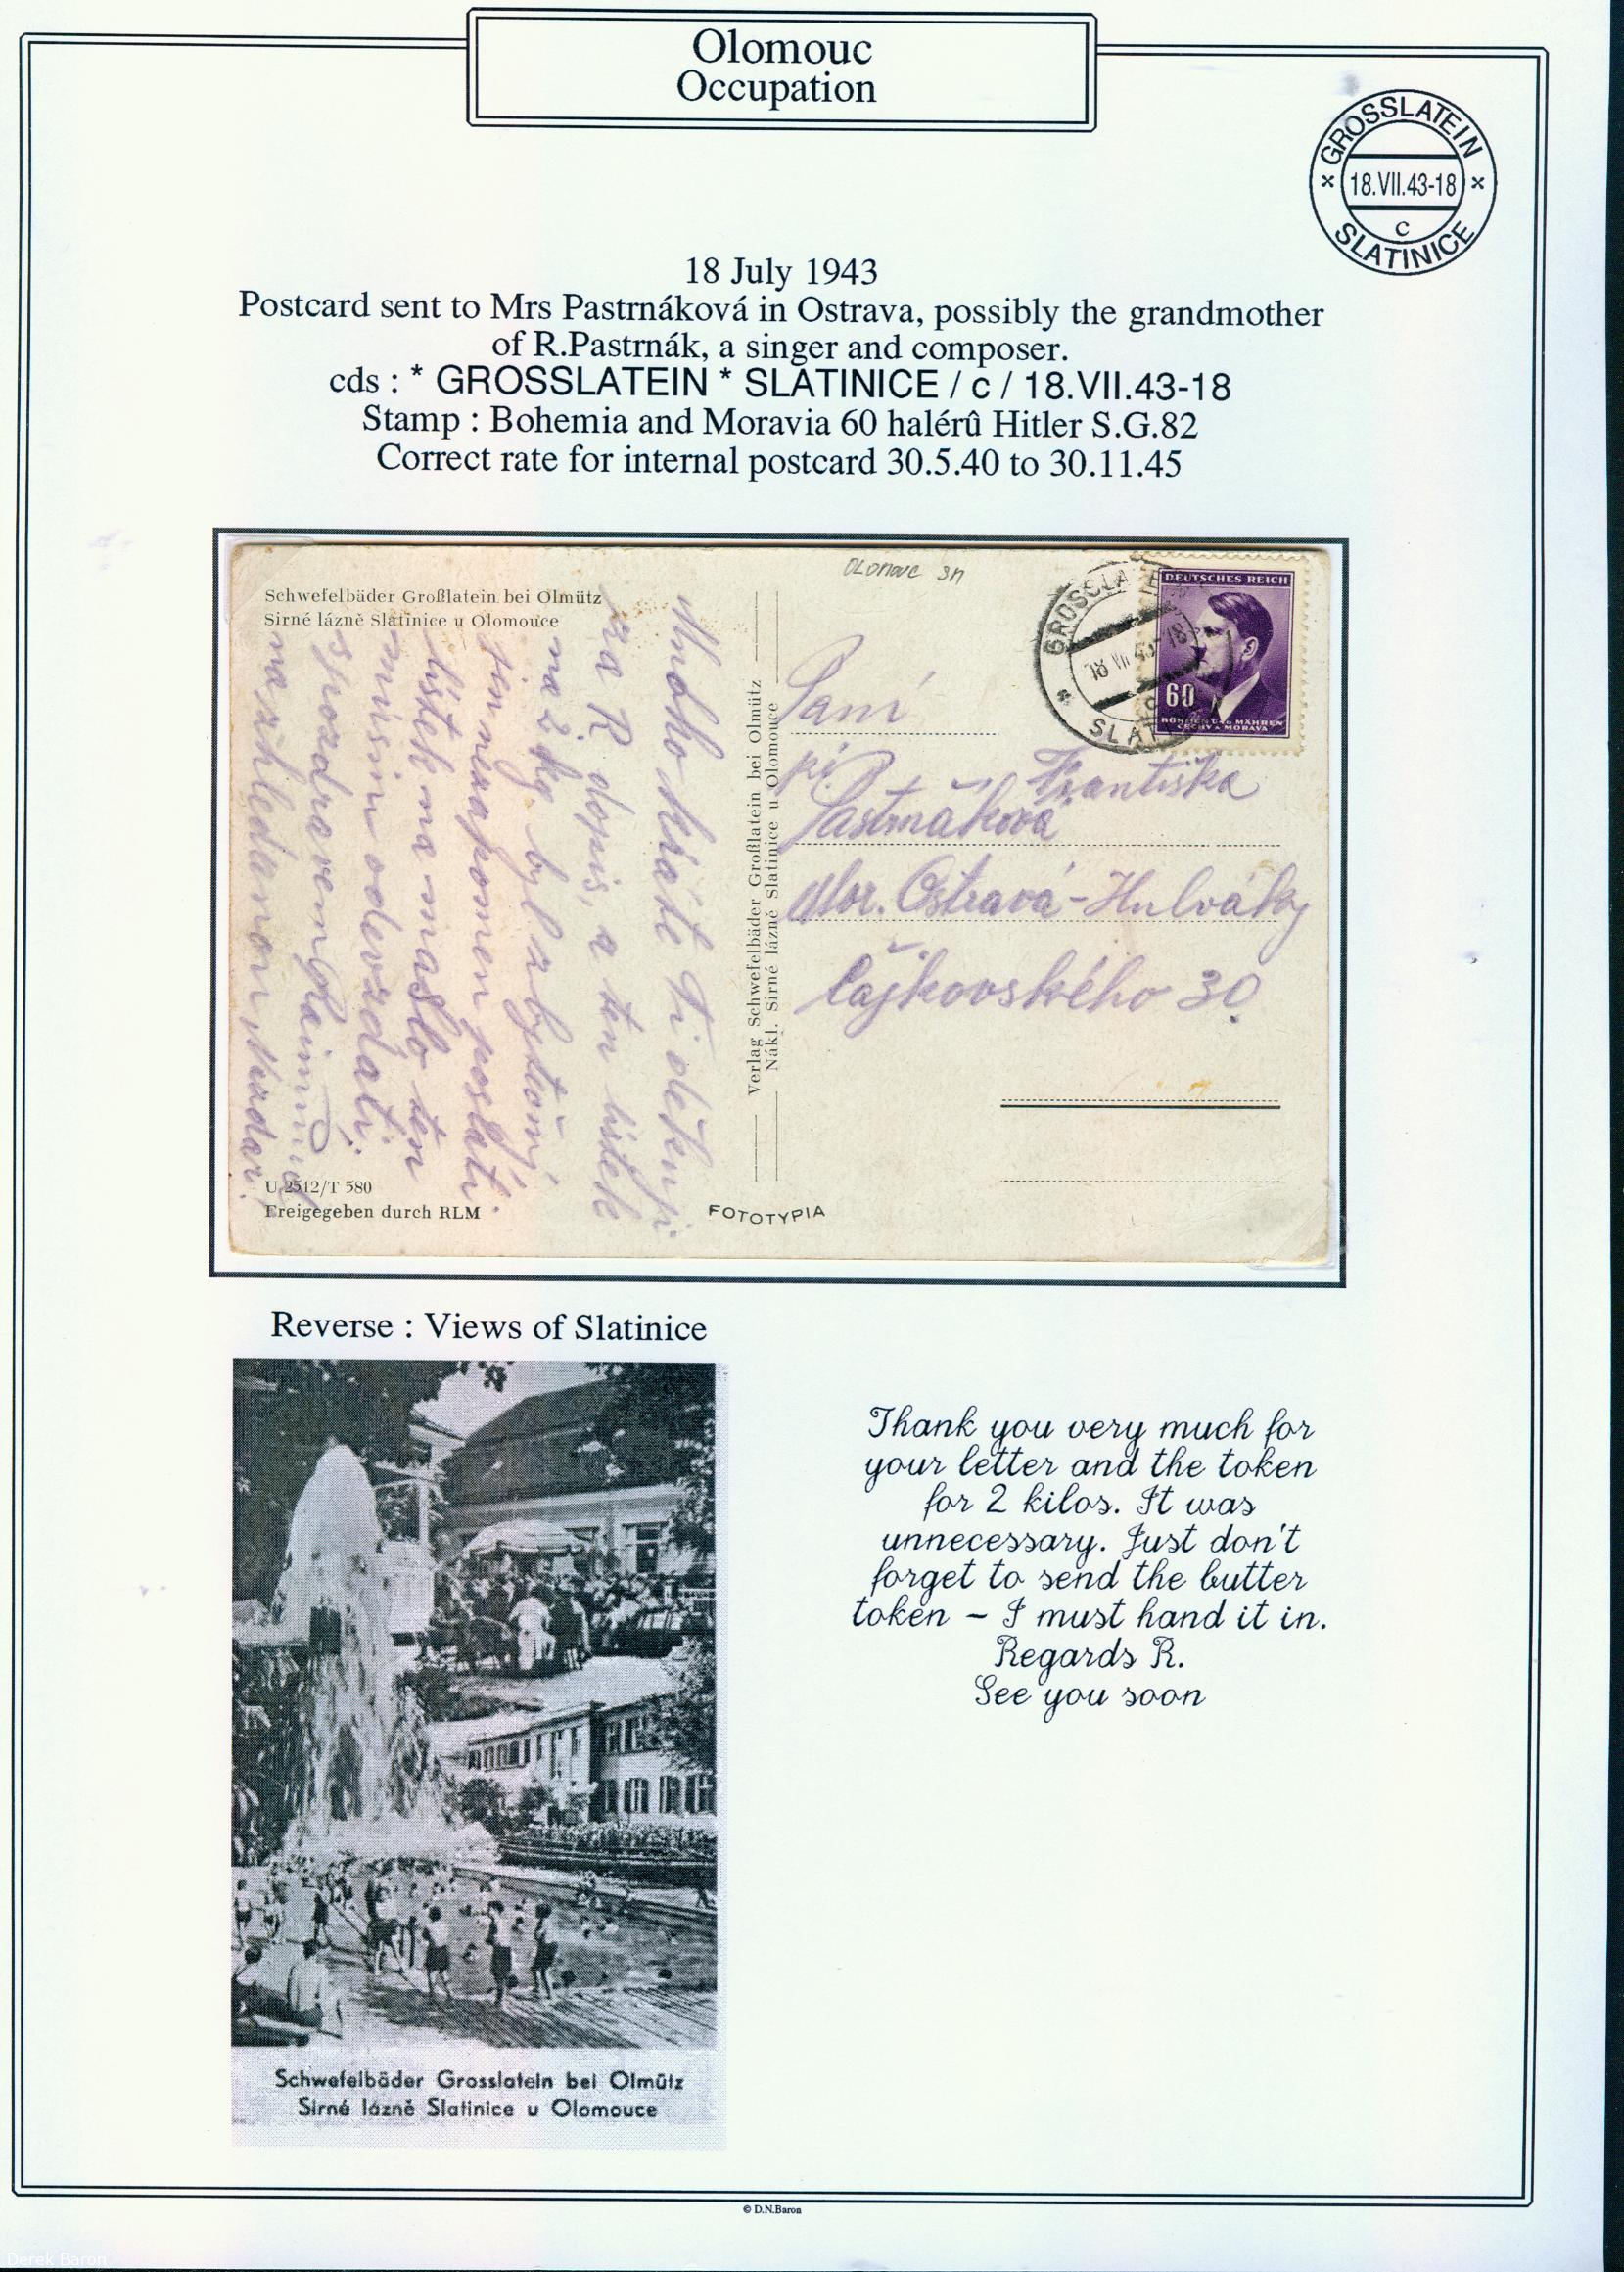 Olomouc
Occupation
GROSSLATEIN
* 18.VII.43-18 *
c
SLATINICE
18 July 1943
Postcard sent to Mrs Pastrnáková in Ostrava, possibly the grandmother
of R.Pastrnák, a singer and composer.
cds : * GROSSLATEIN * SLATINICE / c / 18.VII.43-18
Stamp : Bohemia and Moravia 60 halérû Hitler S.G.82
Correct rate for internal postcard 30.5.40 to 30.11.45
Schwefelbäder Großlatein bei Olmütz
Sirné lázně Slatinice u Olomouce
Mnoho Kráte Ti děkuji
za R dopis, a ten lístek
na 2 kg byl zbytečný
jen nezapomen poslati
lístek na máslo ten
musím odevzdati.
s pozdravem
na shledanou nazdar!
U 2512/T 580
Freigegeben durch RLM
Verlag Schwefelbäder Großlatein bei Olmütz
Nákl. Sirné lázně Slatinice u Olomouce
FOTOTYPIA
OLOMOUC
GROSSLA
18 VII 43 18
SLAT
DEUTSCHES REICH
60
BÖHMEN UND MÄHREN
ČECHY A MORAVA
Paní
Františka
Pastrnáková
Mor. Ostrava-Hulváky
Čajkovského 30.
Reverse : Views of Slatinice
Schwefelbäder Grosslatein bei Olmütz
Sirné lázně Slatinice u Olomouce
Thank you very much for
your letter and the token
for 2 kilos. It was
unnecessary. Just don't
forget to send the butter
token – I must hand it in.
Regards R.
See you soon
© D.N.Baron
Derek Baron